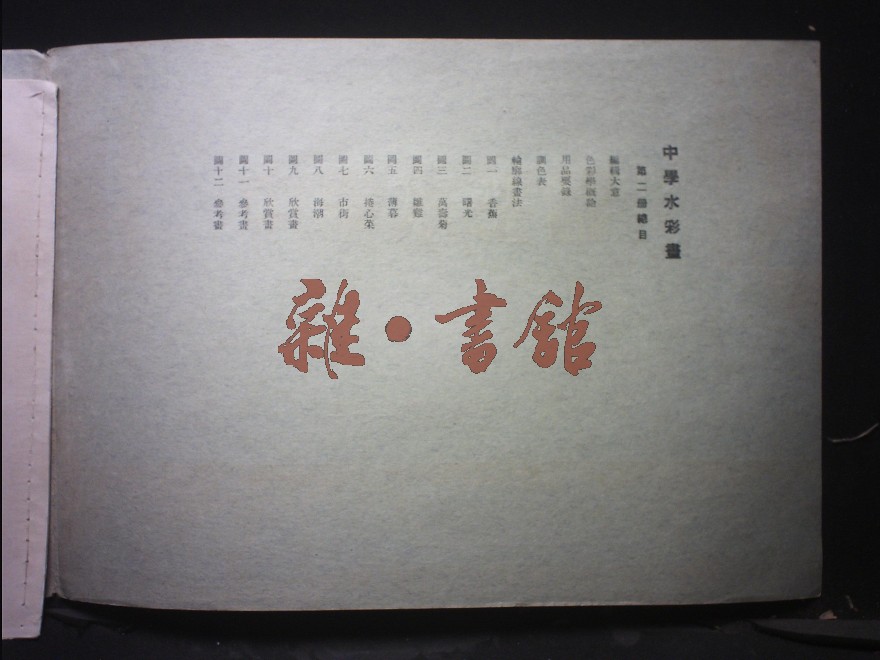 中學水彩畫
第二冊總目
編輯大意
色彩學概論
用品要錄
調色表
輪廓線畫法
圖一 香蕉
圖二 曙光
圖三 萬壽菊
圖四 雛雞
圖五 薄暮
圖六 捲心菜
圖七 市街
圖八 海潮
圖九 欣賞畫
圖十 欣賞畫
圖十一 參考畫
圖十二 參考畫
雜·書館